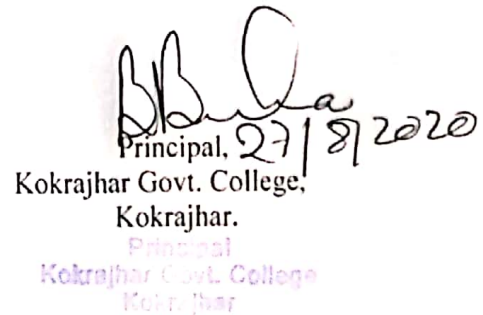 Principal, 27/8/2020
Kokrajhar Govt. College,
Kokrajhar.
Principal
Kokrajhar Govt. College
Kokrajhar